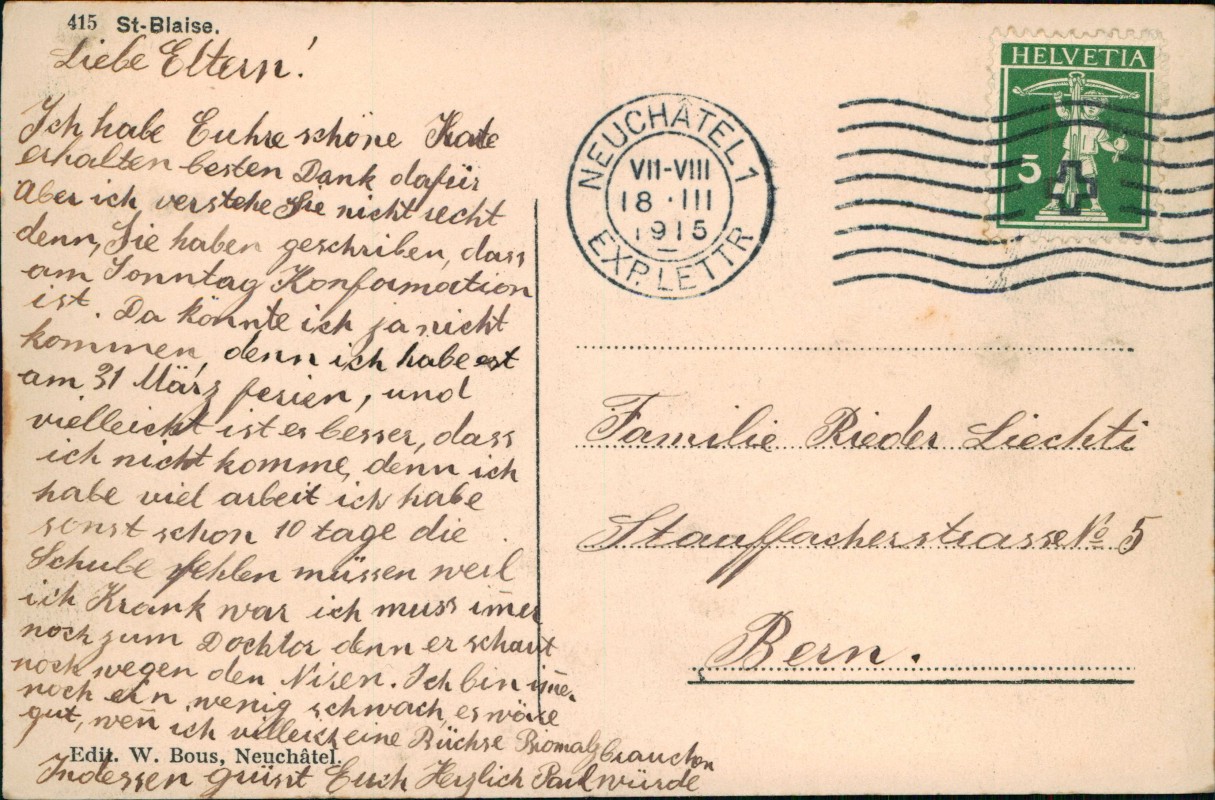 415 St-Blaise.
Liebe Eltern!
Ich habe Euhre schöne Karte
erhalten besten Dank dafür
Aber ich verstehe Sie nicht recht
denn, Sie haben geschriben, dass
am Sonntag Konformation
ist. Da könnte ich ja nicht
kommen, denn ich habe est
am 31 März ferien, und
vielleicht ist es besser, dass
ich nicht komme, denn ich
habe viel arbeit ich habe
sonst schon 10 tage die
Schule fehlen müssen weil
ich Krank war ich muss im̄er
noch zum Dochtor denn er schaut
noch wegen den Niren. Ich bin im̄er
noch ein wenig schwach, es wäre
gut, wen̄ ich villeich eine Büchse Biomalz brauchen
würde
Indessen grüsst Euch Herzlich Paul
Edit. W. Bous, Neuchâtel.
NEUCHÂTEL 1
VII-VIII
18 · III
1915
EXP. LETTR
HELVETIA
5
Familie Rieder Liechti
Stauffacherstrasse No 5
Bern.